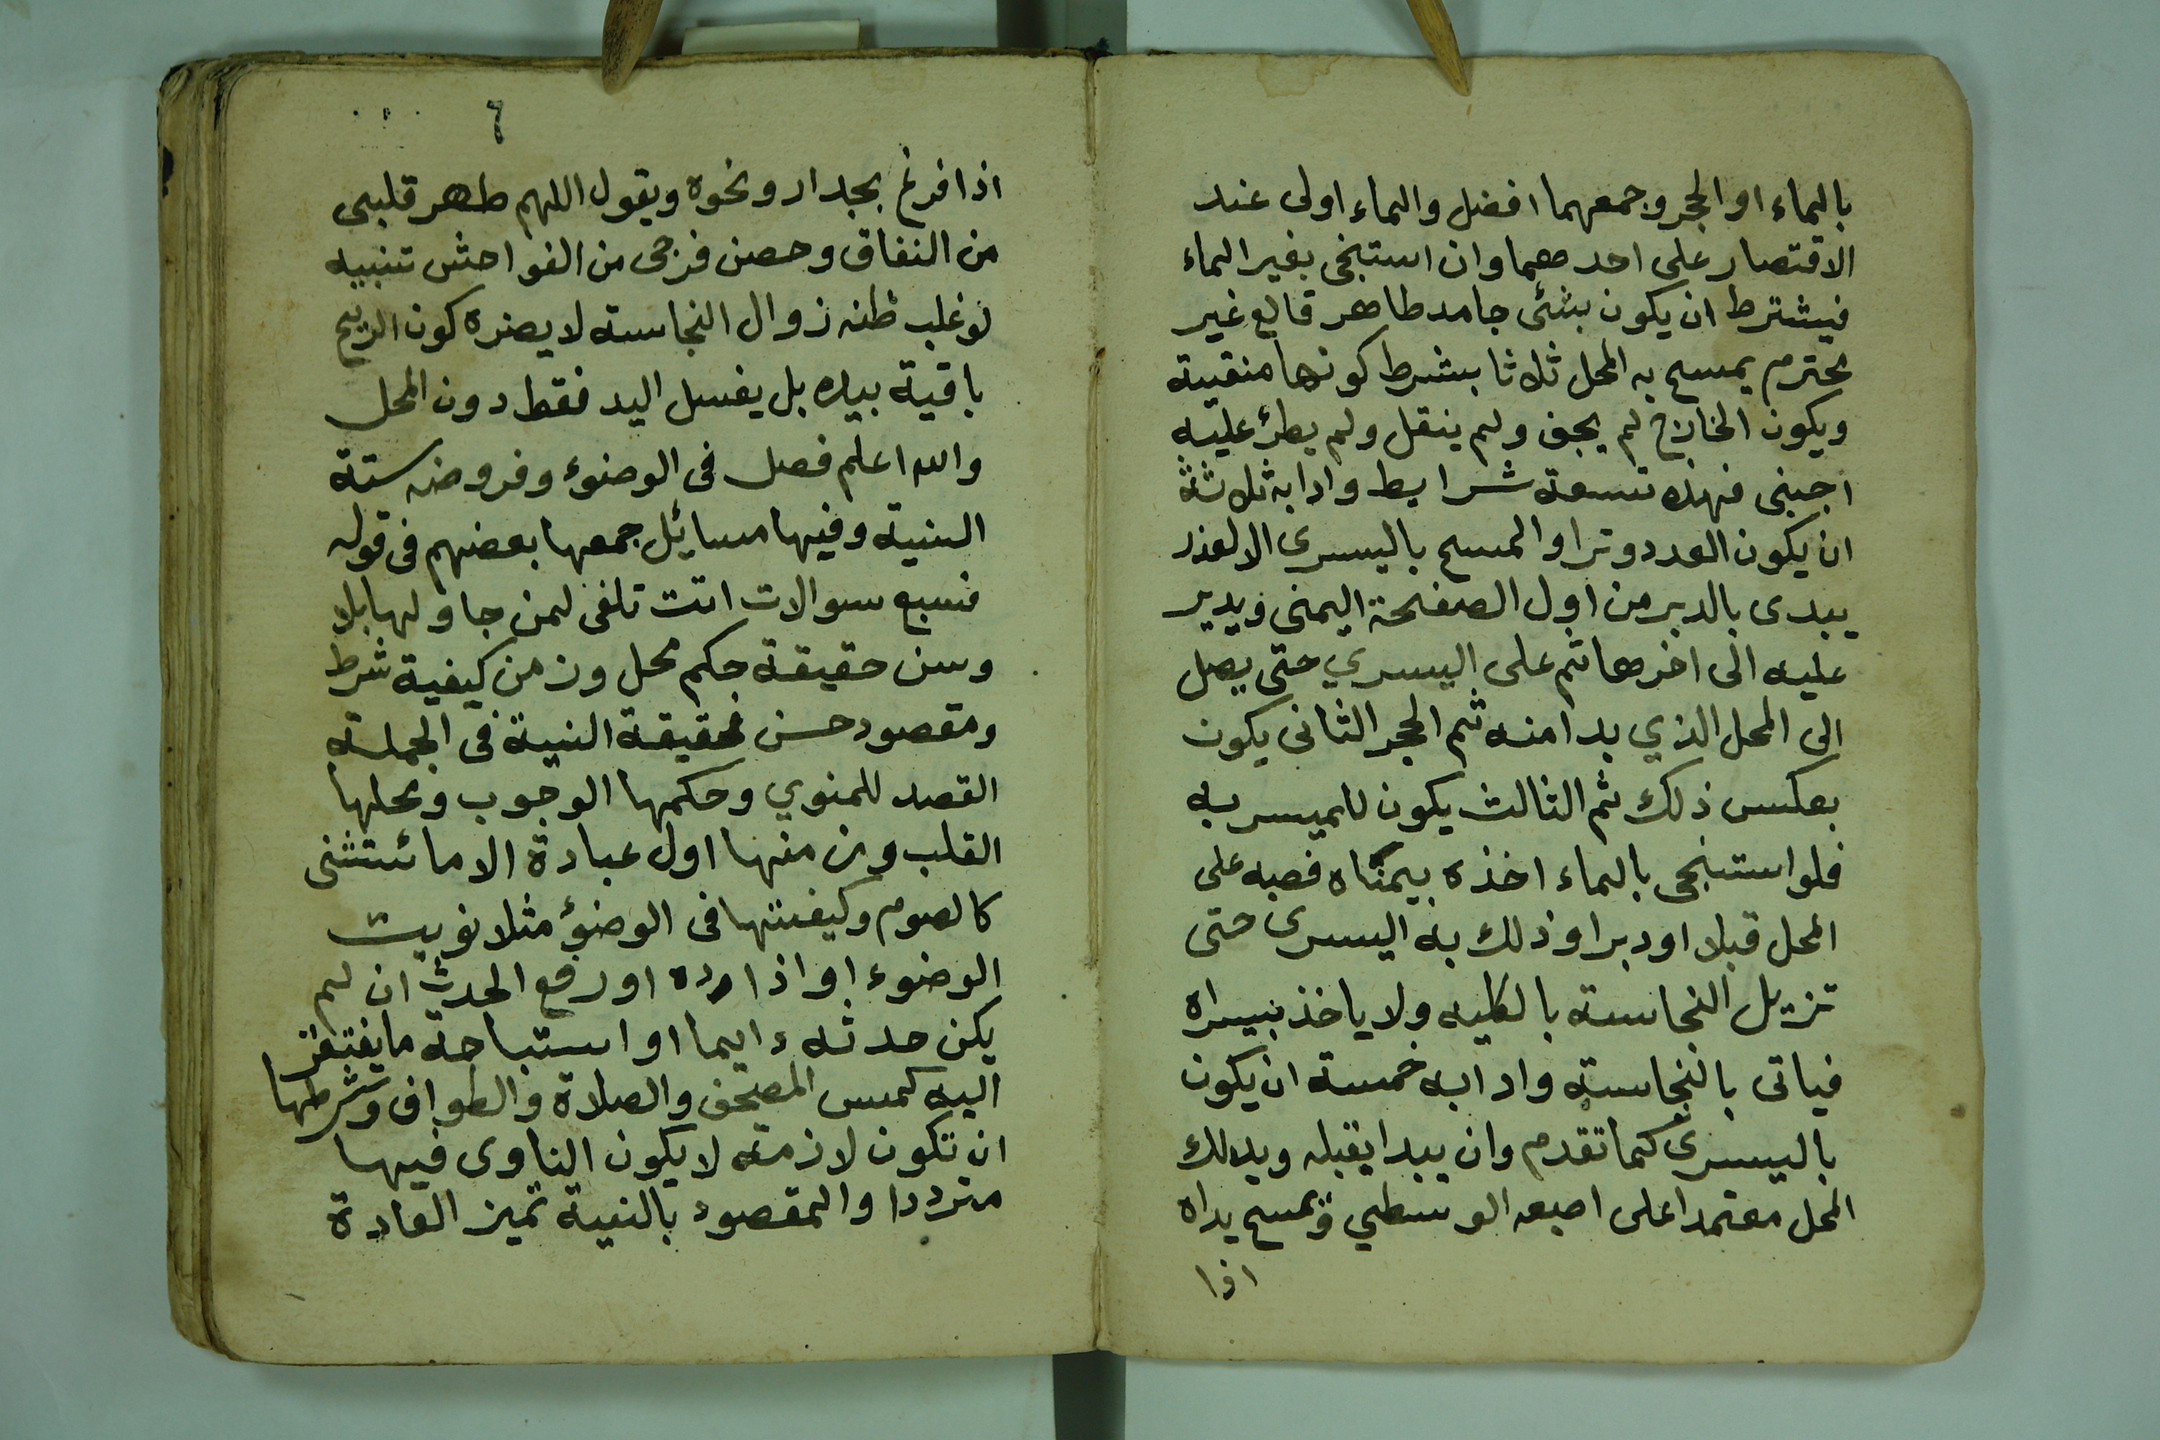 بالماء او الحجر وجمعهما افضل والماء اولى عند
الاقتصار على احدهما وان استنجى بغير الماء
فيشترط ان يكون بشئ جامد طاهر قالع غير
محترم يمسح به المحل ثلاثا بشرط كونها منقية
ويكون الخارج لم يجف ولم ينتقل ولم يطرئ عليه
اجنبى فهذه تسعة شرايط وادابه ثلاثة
ان يكون العدد وترا والمسح باليسرى الا لعذر
يبدى بالدبر من اول الصفحة اليمنى ويدير
عليه الى اخرها ثم على اليسري حتى يصل
الى المحل الذي بدا منه ثم الحجر الثانى يكون
بعكس ذلك ثم الثالث يكون للمسربه
فلو استنجى بالماء اخذه بيمناه فصبه على
المحل قبلا او دبرا وذلك به اليسرى حتى
تزيل النجاسة بالكليه ولا ياخذ بيسراه
فياتى بالنجاسته وادابه خمسة ان يكون
باليسرى كما تقدم وان يبدا بقبله ويدلك
المحل معتمدا على اصبعه الوسطي ويمسح يداه
اذا
٦
اذا فرغ بجدار ونحوه ويقول اللهم طهر قلبى
من النفاق وحصن فرجى من الفواحش تنبيه
لو غلب ظنه زوال النجاسته لا يضره كون الريح
باقية بيده بل يغسل اليد فقط دون المحل
والله اعلم فصل فى الوضوء وفروضه ستة
النية وفيها مسايئل جمعها بعضهم فى قوله
فسبع سوالات اتت تلفى لمن جا ولها بلا
وسن حقيقة حكم محل وزمن كيفية شرط
ومقصود حسن فحقيقة النية فى الجملة
القصد للمنوي وحكمها الوجوب ومحلها
القلب وزمنها اول عبادة الا ما ئستثنى
كالصوم وكيفيتها فى الوضوء مثلا نويت
الوضوء او اذا رده او رفع الحدث ان لم
يكن حدثه دايما او استباحة ما يفتقر
اليه كمس المصحف والصلاة والطواف وشرطها
ان تكون لازمة لا يكون الناوى فيها
مترددا والمقصود بالنية تميز العادة